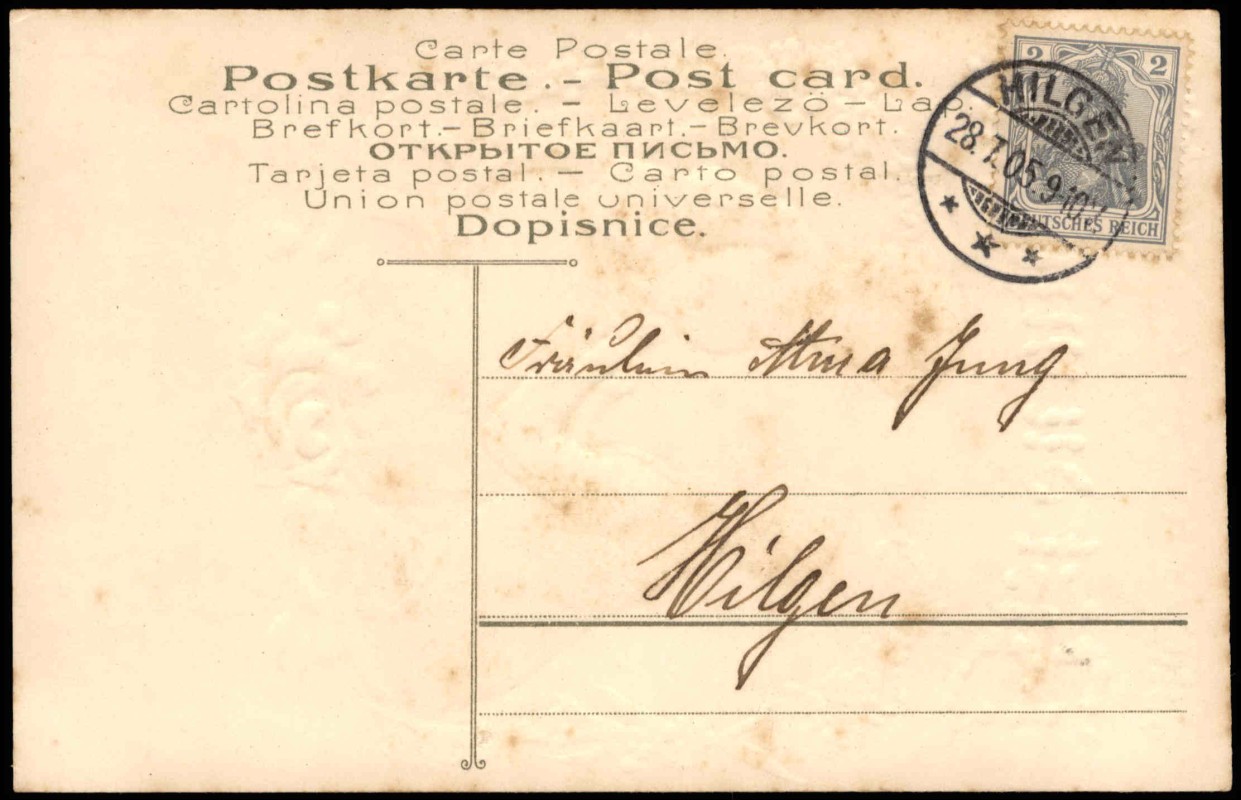 Carte Postale.
Postkarte. - Post card.
Cartolina postale. - Levelezö - Lap.
Brefkort. - Briefkaart. - Brevkort.
ОТКРЫТОЕ ПИСЬМО.
Tarjeta postal. - Carto postal.
Union postale universelle.
Dopisnice.
2 2
DEUTSCHES REICH
HILGEN
28.7.05. 9-10
Fräulein Anna Jung
Hilgen